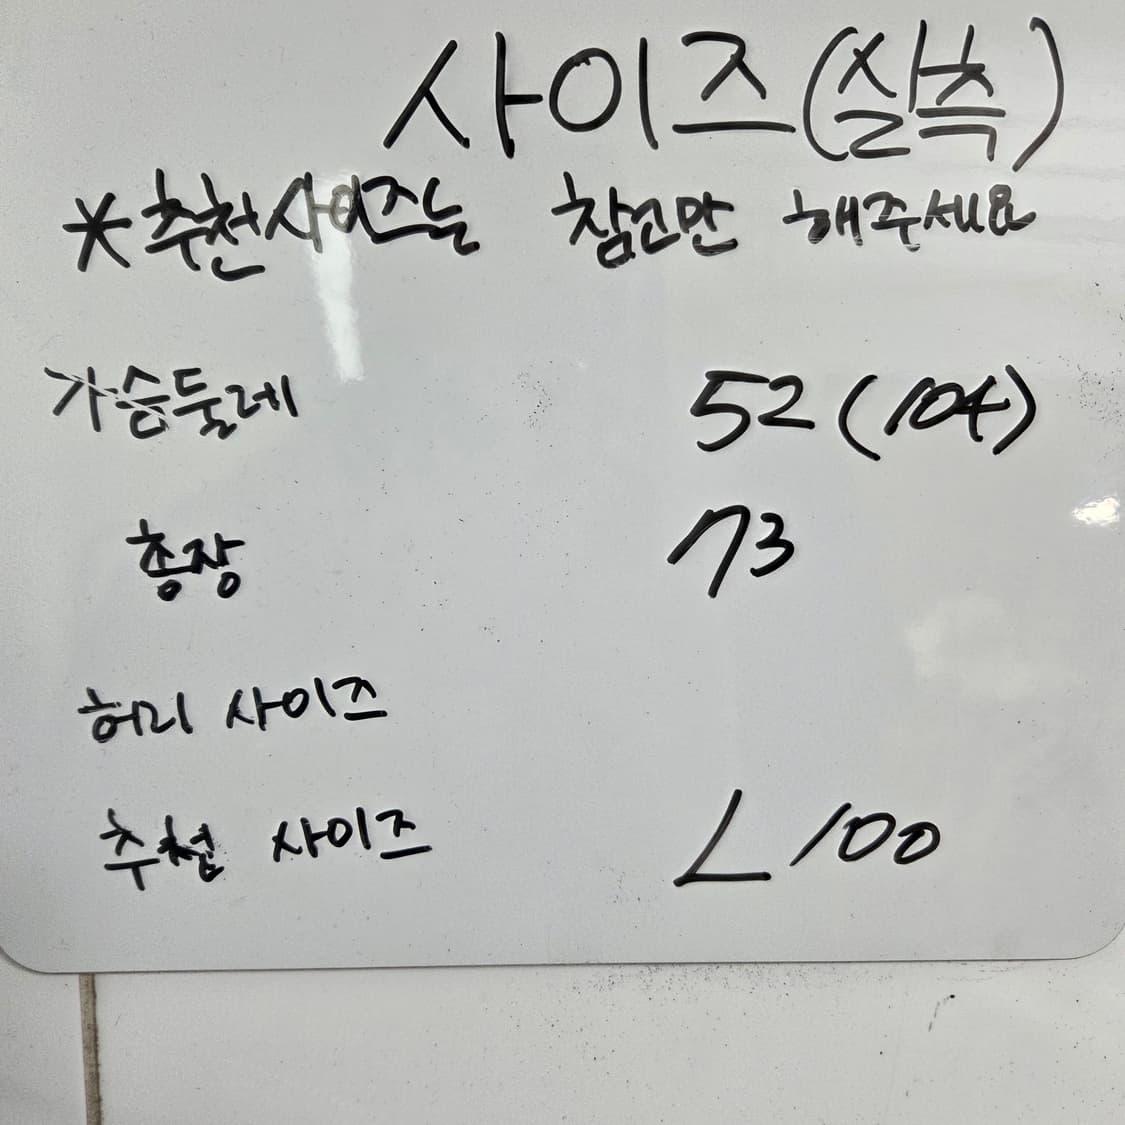 사이즈(실측)
*추천사이즈는 참고만 해주세요
가슴둘레 52(104)
총장 73
허리 사이즈
추천 사이즈 L 100